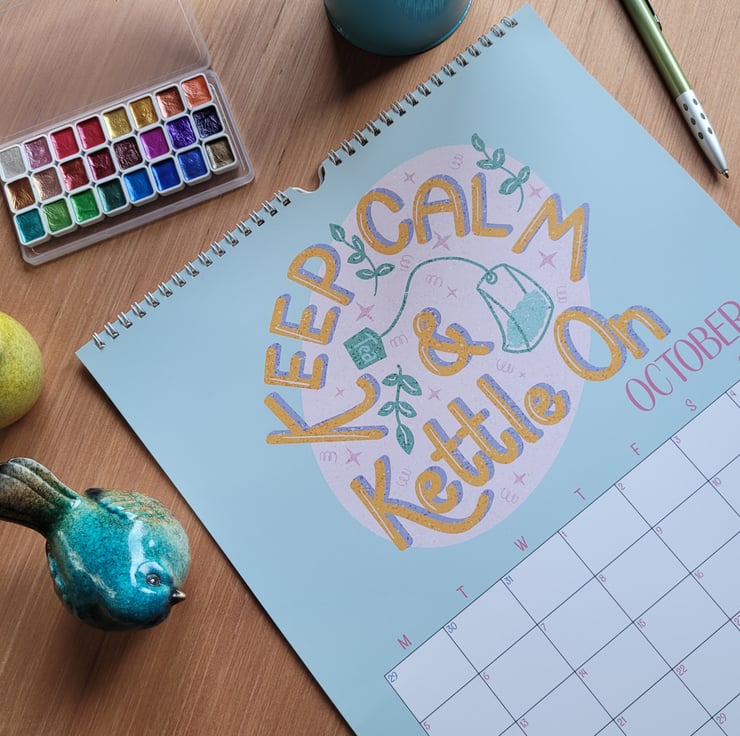 KEEP CALM
&
Kettle On
OCTOBER
M T W T F S
29 30 31 1 2 3 4
5 6 7 8 9 10
13 14 15 16
21 22
29